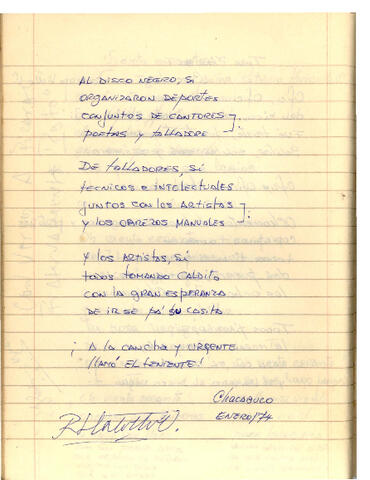 AL DISCO NEGRO, SÍ
ORGANIZARON DEPORTES
CONJUNTOS DE CANTORES
POETAS y TALLADORE
DE TALLADORES, SÍ
TECNICOS e INTELECTUALES
JUNTOS CON LOS ARTISTAS
y LOS OBREROS MANUALES
Y LOS ARTISTAS, SÍ
TODOS TOMANDO CALDITO
CON LA GRAN ESPERANZA
DE IRSE PÁ SU CASITA
¡ A LA CANCHA y URGENTE
LLAMÓ EL TENIENTE!
CHACABUCO
ENERO/74